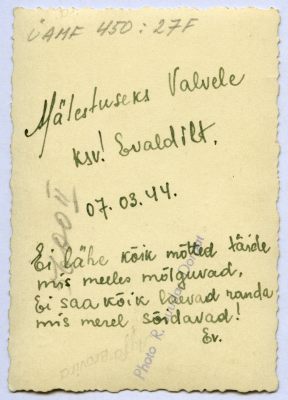 ÜAMF 450 : 27F
Mälestuseks Valvele
ksv! Evaldilt.
07.03.44.
Ei lähe kõik mõtted täide
mis meeles mõlguvad,
Ei saa kõik laevad randa
mis merel sõidavad!
Ev.
Photo R.